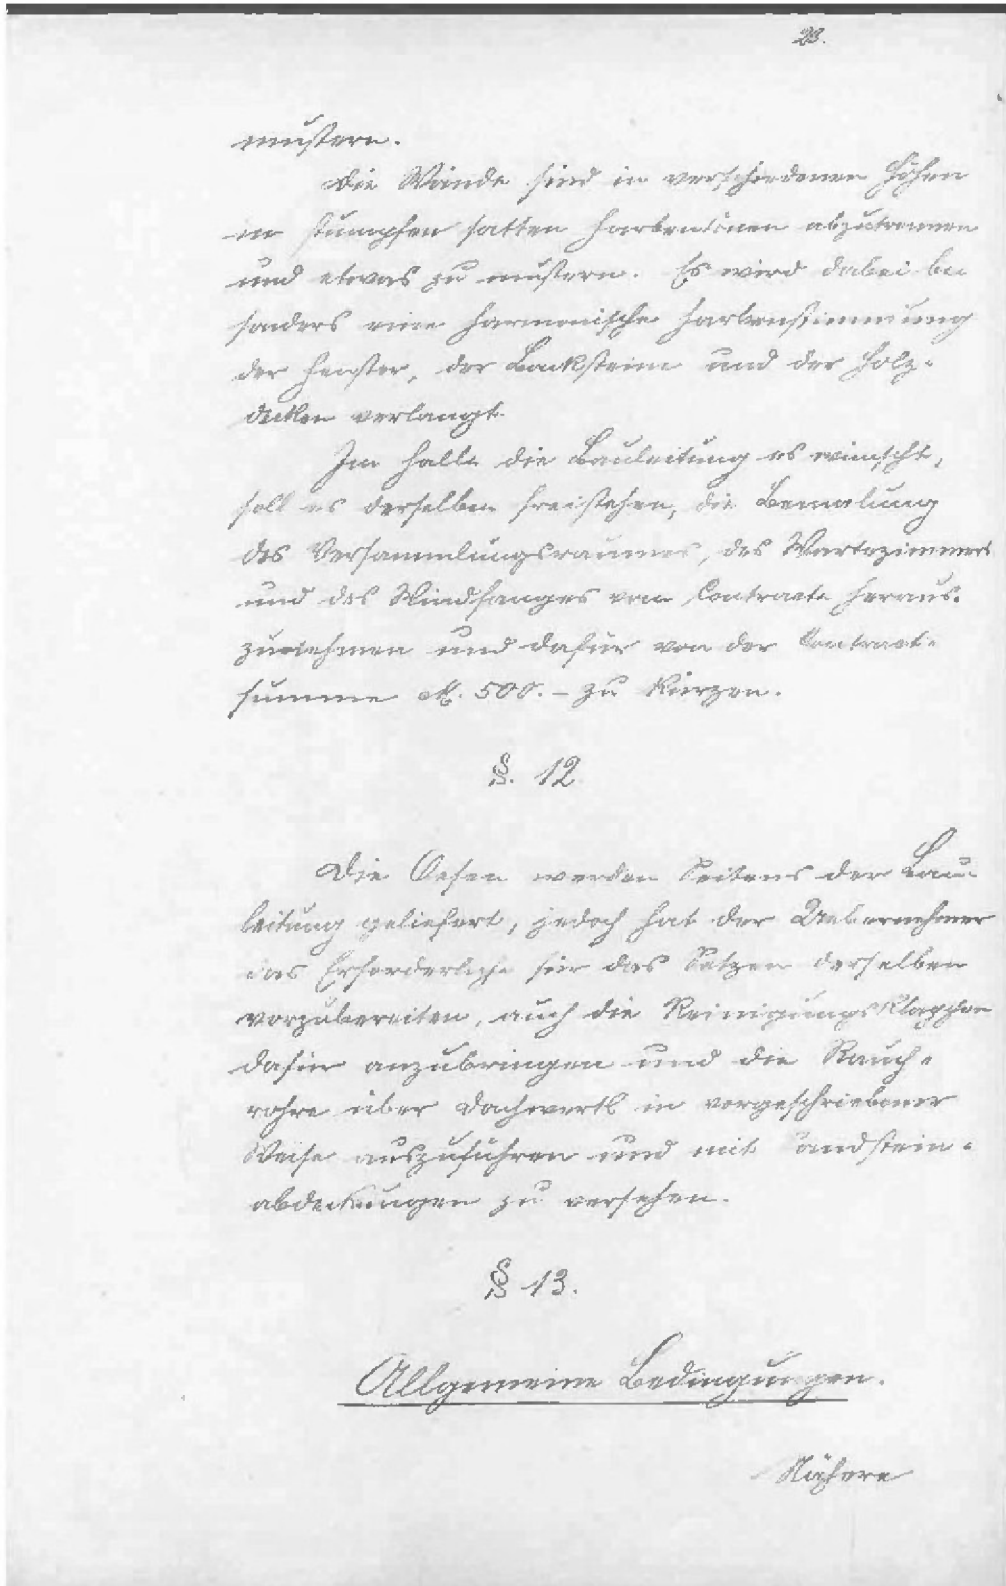 23.
mustern.
Die Wände sind in verschiedenen Höhen
in stumpfen satten Farbentönen abzutönen
und etwas zu mustern. Es wird dabei be
sonders eine harmonische Farbenstimmung
der Fenster, der Backsteine und der Holz-
decken verlangt.
Im Falle die Bauleitung es wünscht,
soll es derselben freistehen, die Bemalung
des Versammlungsraumes, des Wartezimmers
und des Windfanges vom Contracte heraus-
zunehmen und dafür von der Contract-
summe M. 500.- zu kürzen.
§. 12
Die Oefen werden Seitens der Bau
leitung geliefert, jedoch hat der Uebernehmer
das Erforderliche für das Setzen derselben
vorzubereiten, auch die Reinigungsklappen
dafür anzubringen und die Rauch-
rohre über Dach in vorgeschriebener
Weise auszuführen und mit Sandstein-
abdeckungen zu versehen.
§ 13.
Allgemeine Bedingungen.
Nähere